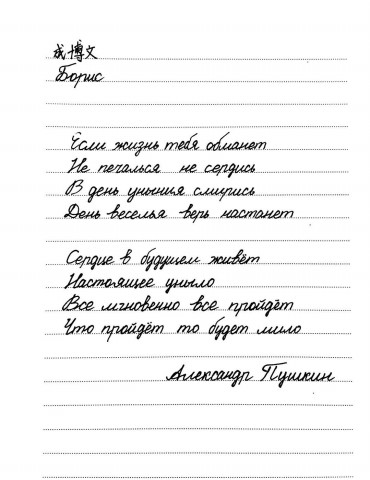 成博文
Борис
Если жизнь тебя обманет
Не печалься не сердись
В день уныния смирись
День веселья верь настанет
Сердце в будущем живёт
Настоящее уныло
Все мгновенно все пройдёт
Что пройдёт то будет мило
Александр Пушкин